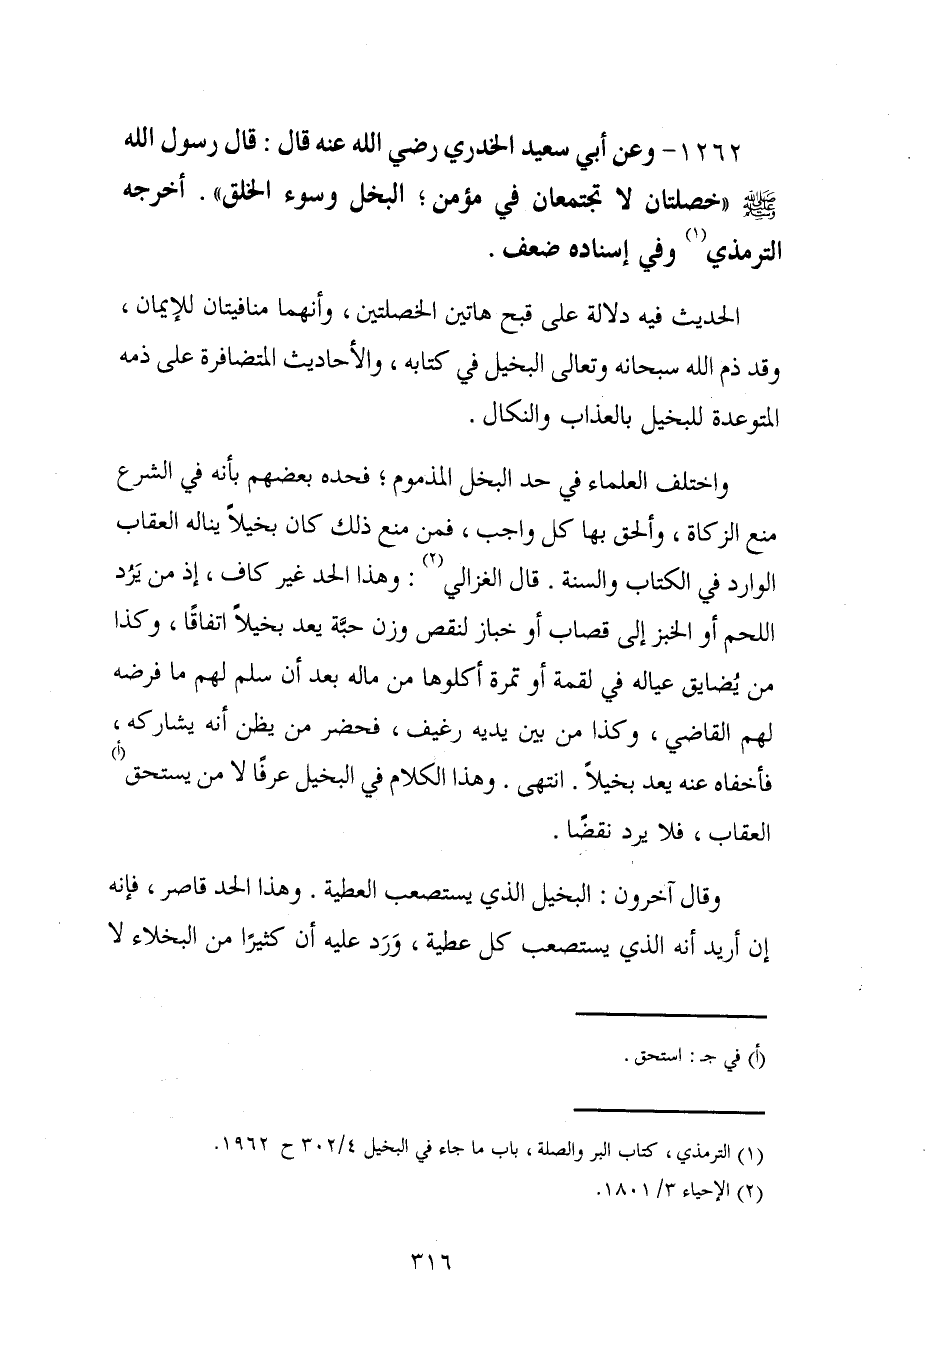 ١٢٦٢- وعن أبي سعيد الخدري رضي الله عنه قال : قال رسول الله
ﷺ «خصلتان لا تجتمعان في مؤمن ؛ البخل وسوء الخلق» . أخرجه
الترمذي(١) وفي إسناده ضعف .
الحديث فيه دلالة على قبح هاتين الخصلتين ، وأنهما منافيتان للإيمان ،
وقد ذم الله سبحانه وتعالى البخيل في كتابه ، والأحاديث المتضافرة على ذمه
المتوعدة للبخيل بالعذاب والنكال .
واختلف العلماء في حد البخل المذموم ؛ فحده بعضهم بأنه في الشرع
منع الزكاة ، وألحق بها كل واجب ، فمن منع ذلك كان بخيلاً يناله العقاب
الوارد في الكتاب والسنة . قال الغزالي(٢) : وهذا الحد غير كاف ، إذ من يَرُد
اللحم أو الخبز إلى قصاب أو خباز لنقص وزن حبَّة يعد بخيلاً اتفاقًا ، وكذا
من يُضايق عياله في لقمة أو تمرة أكلوها من ماله بعد أن سلم لهم ما فرضه
لهم القاضي ، وكذا من بين يديه رغيف ، فحضر من يظن أنه يشاركه ،
فأخفاه عنه يعد بخيلاً . انتهى . وهذا الكلام في البخيل عرفًا لا من يستحق(أ)
العقاب ، فلا يرد نقضًا .
وقال آخرون : البخيل الذي يستصعب العطية . وهذا الحد قاصر ، فإنه
إن أريد أنه الذي يستصعب كل عطية ، وَرَد عليه أن كثيرًا من البخلاء لا
(أ) في جـ : استحق .
(١) الترمذي ، كتاب البر والصلة ، باب ما جاء في البخيل ٣٠٢/٤ ح ١٩٦٢.
(٢) الإحياء ٣/ ١٨٠١.
٣١٦